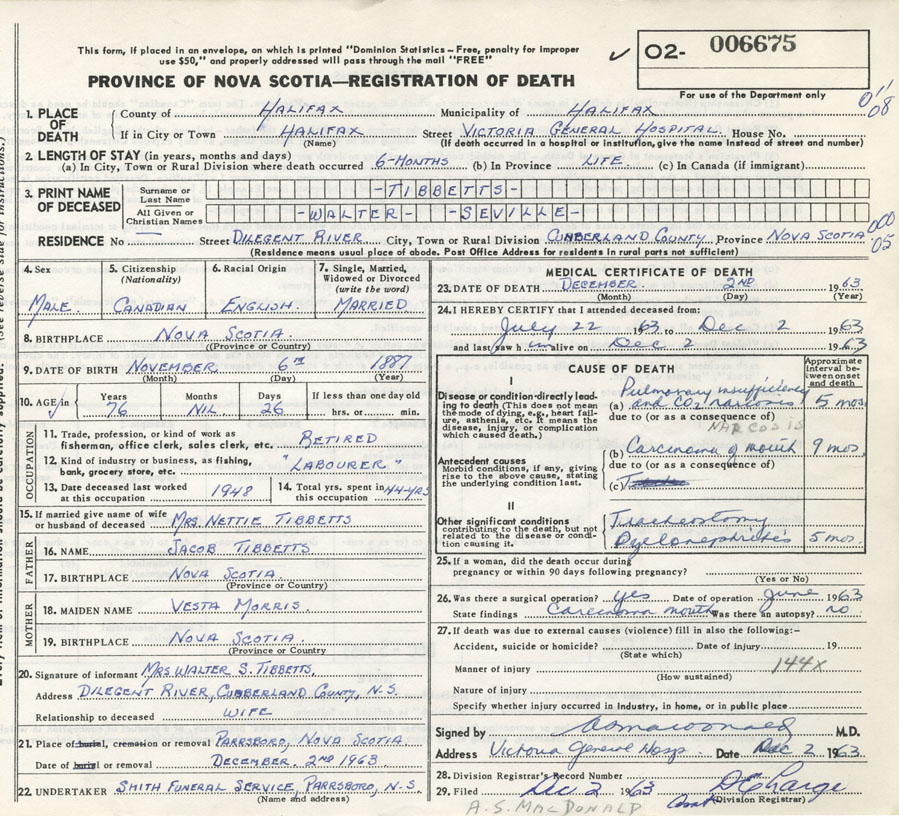 This form, if placed in an envelope, on which is printed "Dominion Statistics – Free, penalty for improper
use $50," and properly addressed will pass through the mail "FREE"
✓ 02- 006675
PROVINCE OF NOVA SCOTIA—REGISTRATION OF DEATH
For use of the Department only
1. PLACE OF DEATH County of HALIFAX Municipality of HALIFAX
If in City or Town HALIFAX Street VICTORIA GENERAL HOSPITAL House No.
(Name) (If death occurred in a hospital or institution, give the name instead of street and number)
2. LENGTH OF STAY (in years, months and days)
(a) In City, Town or Rural Division where death occurred 6-MONTHS (b) In Province LIFE (c) In Canada (if immigrant)
3. PRINT NAME OF DECEASED
Surname or Last Name -TIBBETTS-
All Given or Christian Names -WALTER- -SEVILLE-
000
05
RESIDENCE No Street DILEGENT RIVER City, Town or Rural Division CUMBERLAND COUNTY Province NOVA SCOTIA
(Residence means usual place of abode. Post Office Address for residents in rural parts not sufficient)
4. Sex MALE
5. Citizenship (Nationality) CANADIAN
6. Racial Origin ENGLISH.
7. Single, Married, Widowed or Divorced (write the word) MARRIED
8. BIRTHPLACE NOVA SCOTIA.
(Province or Country)
9. DATE OF BIRTH NOVEMBER 6TH 1887
(Month) (Day) (Year)
10. AGE in Years 76 Months NIL Days 26 If less than one day old hrs. or min.
OCCUPATION
11. Trade, profession, or kind of work as fisherman, office clerk, sales clerk, etc. RETIRED
12. Kind of industry or business, as fishing, bank, grocery store, etc. "LABOURER"
13. Date deceased last worked at this occupation 1948
14. Total yrs. spent in this occupation 44-YRS
15. If married give name of wife or husband of deceased MRS. NETTIE TIBBETTS
FATHER
16. NAME JACOB TIBBETTS
17. BIRTHPLACE NOVA SCOTIA.
(Province or Country)
MOTHER
18. MAIDEN NAME VESTA MORRIS
19. BIRTHPLACE NOVA SCOTIA
(Province or Country)
20. Signature of informant MRS WALTER S. TIBBETTS,
Address DILEGENT RIVER, CUMBERLAND COUNTY, N.S.
Relationship to deceased WIFE
21. Place of burial, cremation or removal PARRSBORO, NOVA SCOTIA
Date of burial or removal DECEMBER. 2ND 1963
22. UNDERTAKER SMITH FUNERAL SERVICE, PARRSBORO, N.S
(Name and address)
MEDICAL CERTIFICATE OF DEATH
23. DATE OF DEATH DECEMBER. 2ND 1963
(Month) (Day) (Year)
24. I HEREBY CERTIFY that I attended deceased from:
July 22 1963 to Dec 2 1963
and last saw him alive on Dec 2 1963
CAUSE OF DEATH
Approximate interval between onset and death
I
Disease or condition directly leading to death (This does not mean the mode of dying, e.g., heart failure, asthenia, etc. It means the disease, injury, or complication which caused death.)
(a) Pulmonary insufficiency and CO2 narcosis 5 mos.
due to (or as a consequence of)
NARCOSIS
Antecedent causes
Morbid conditions, if any, giving rise to the above cause, stating the underlying condition last.
(b) Carcinoma of mouth 9 mos.
due to (or as a consequence of)
(c)
II
Other significant conditions
contributing to the death, but not related to the disease or condition causing it.
Tracheostomy
Pyelonephritis 5 mos.
25. If a woman, did the death occur during pregnancy or within 90 days following pregnancy?
(Yes or No)
26. Was there a surgical operation? yes Date of operation June 1963
State findings Carcinoma mouth Was there an autopsy? no
27. If death was due to external causes (violence) fill in also the following:–
Accident, suicide or homicide? Date of injury 19
(State which)
Manner of injury 144X
(How sustained)
Nature of injury
Specify whether injury occurred in Industry, in home, or in public place
Signed by M.D.
Address Victoria General Hosp. Date Dec 2 1963
28. Division Registrar's Record Number
29. Filed Dec 2 1963
(Division Registrar)
A.S. MACDONALD